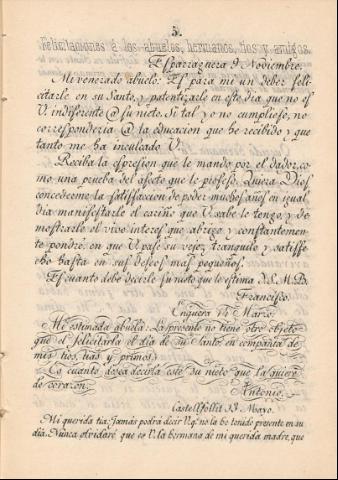 5.
Felicitaciones á los abuelos, hermanos, tíos y amigos.
Esparraguera 9 Noviembre.
Mi venerado abuelo: Es para mi un deber feli-
citarle en su Santo, y patentizarle en este dia que no es
V. indiferente @ su nieto. Si tal yo no cumpliese, no
corresponderia @ la educacion que he recibido y que
tanto me ha inculcado V.
Reciba la espresion que le mando por el dador, co-
mo una prueba del afecto que le profeso. Quiera Dios
concederme la satisfaccion de poder muchos años en igual
dia manifestarle el cariño que V. sabe le tengo, y de-
mostrarle el vivo interes que abrigo y constantemente
pondré, en que V. pase su vejez tranquilo y satisfe-
cho hasta en sus deseos mas pequeños.
Es cuanto debe decirle su nieto que le estima
Francisco.
Enguera 15 Marzo.
Mi estimada abuela: La presente no tiene otro objeto
que el felicitarla el dia de su Santo, en compañia de
mis tios, tias y primos.
Es cuanto desea decirla este su nieto que la quiere
de corazon.
Antonio.
Castellfollit 13 Mayo.
Mi querida tia: Jamás podrá decir V. q.e no la he tenido presente en su
dia. Nunca olvidaré, que es V. la hermana de mi querida madre, que